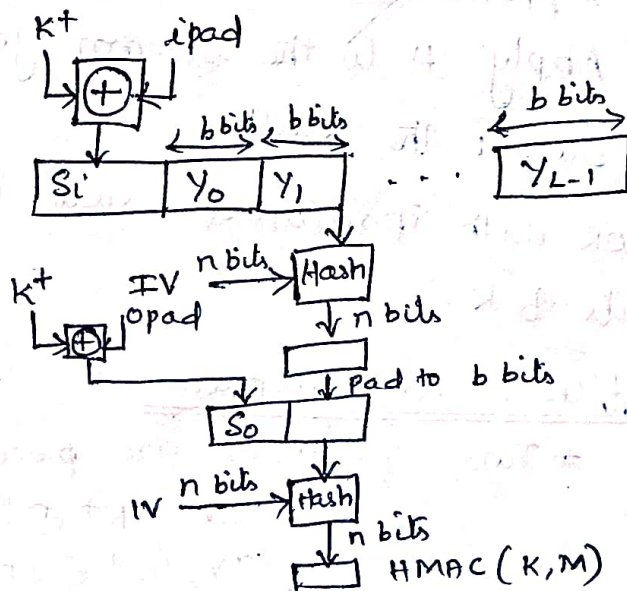 K+ ipad
+
b bits b bits b bits
Si Y0 Y1 .... YL-1
n bits Hash
K+ IV
opad
+
n bits
pad to b bits
So
IV n bits Hash
n bits
HMAC (K, M)